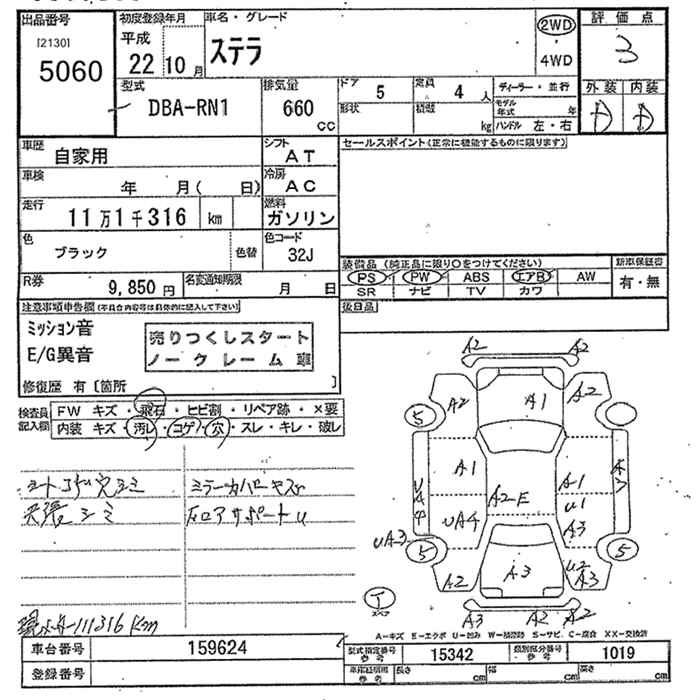 出品番号
[2130]
5060
初度登録年月
平成
22 10 月
車名・グレード
ステラ
2WD
4WD
評価点
3
外装 内装
型式
DBA-RN1
排気量
660
cc
ドア 5
形状
定員 4 人
積載
kg
ディーラー・並行
モデル年式 年
ハンドル 左・右
車歴
自家用
シフト
AT
車検
年 月( 日)
冷房
AC
走行
11万1千316 km
燃料
ガソリン
色
ブラック
色替
色コード
32J
R券
9,850 円
名変通知期限
月 日
セールスポイント(正常に機能するものに限ります)
装備品(純正品に限り○をつけてください)
PS PW ABS エアB AW
SR ナビ TV カワ
新車保証書
有・無
後日品
注意事項申告欄(不具合内容等は具体的に記入して下さい)
ミッション音
E/G異音
売りつくしスタート
ノークレーム車
修復歴 有〔箇所 〕
検査員記入欄
FW キズ・飛石・ヒビ割・リペア跡・×要
内装 キズ・汚レ・コゲ・穴・スレ・キレ・破レ
シートコゲ穴シミ
天張シミ
ミラーカバーキズ
111316 Km
A2 A2
A2 A1 A2
5
A1 A1
A2E U1
UA4 A3
UA3
5 5
A2 A3 U2 A3
A3 A2 A2
T
スペア
A-キズ E-エクボ U-凹み W-補修跡 S-サビ C-腐食 XX-交換済
車台番号 159624
登録番号
型式指定番号 参考 15342
類別区分番号 参考 1019
車庫証明用 参考 長さ cm 幅 cm 高さ cm